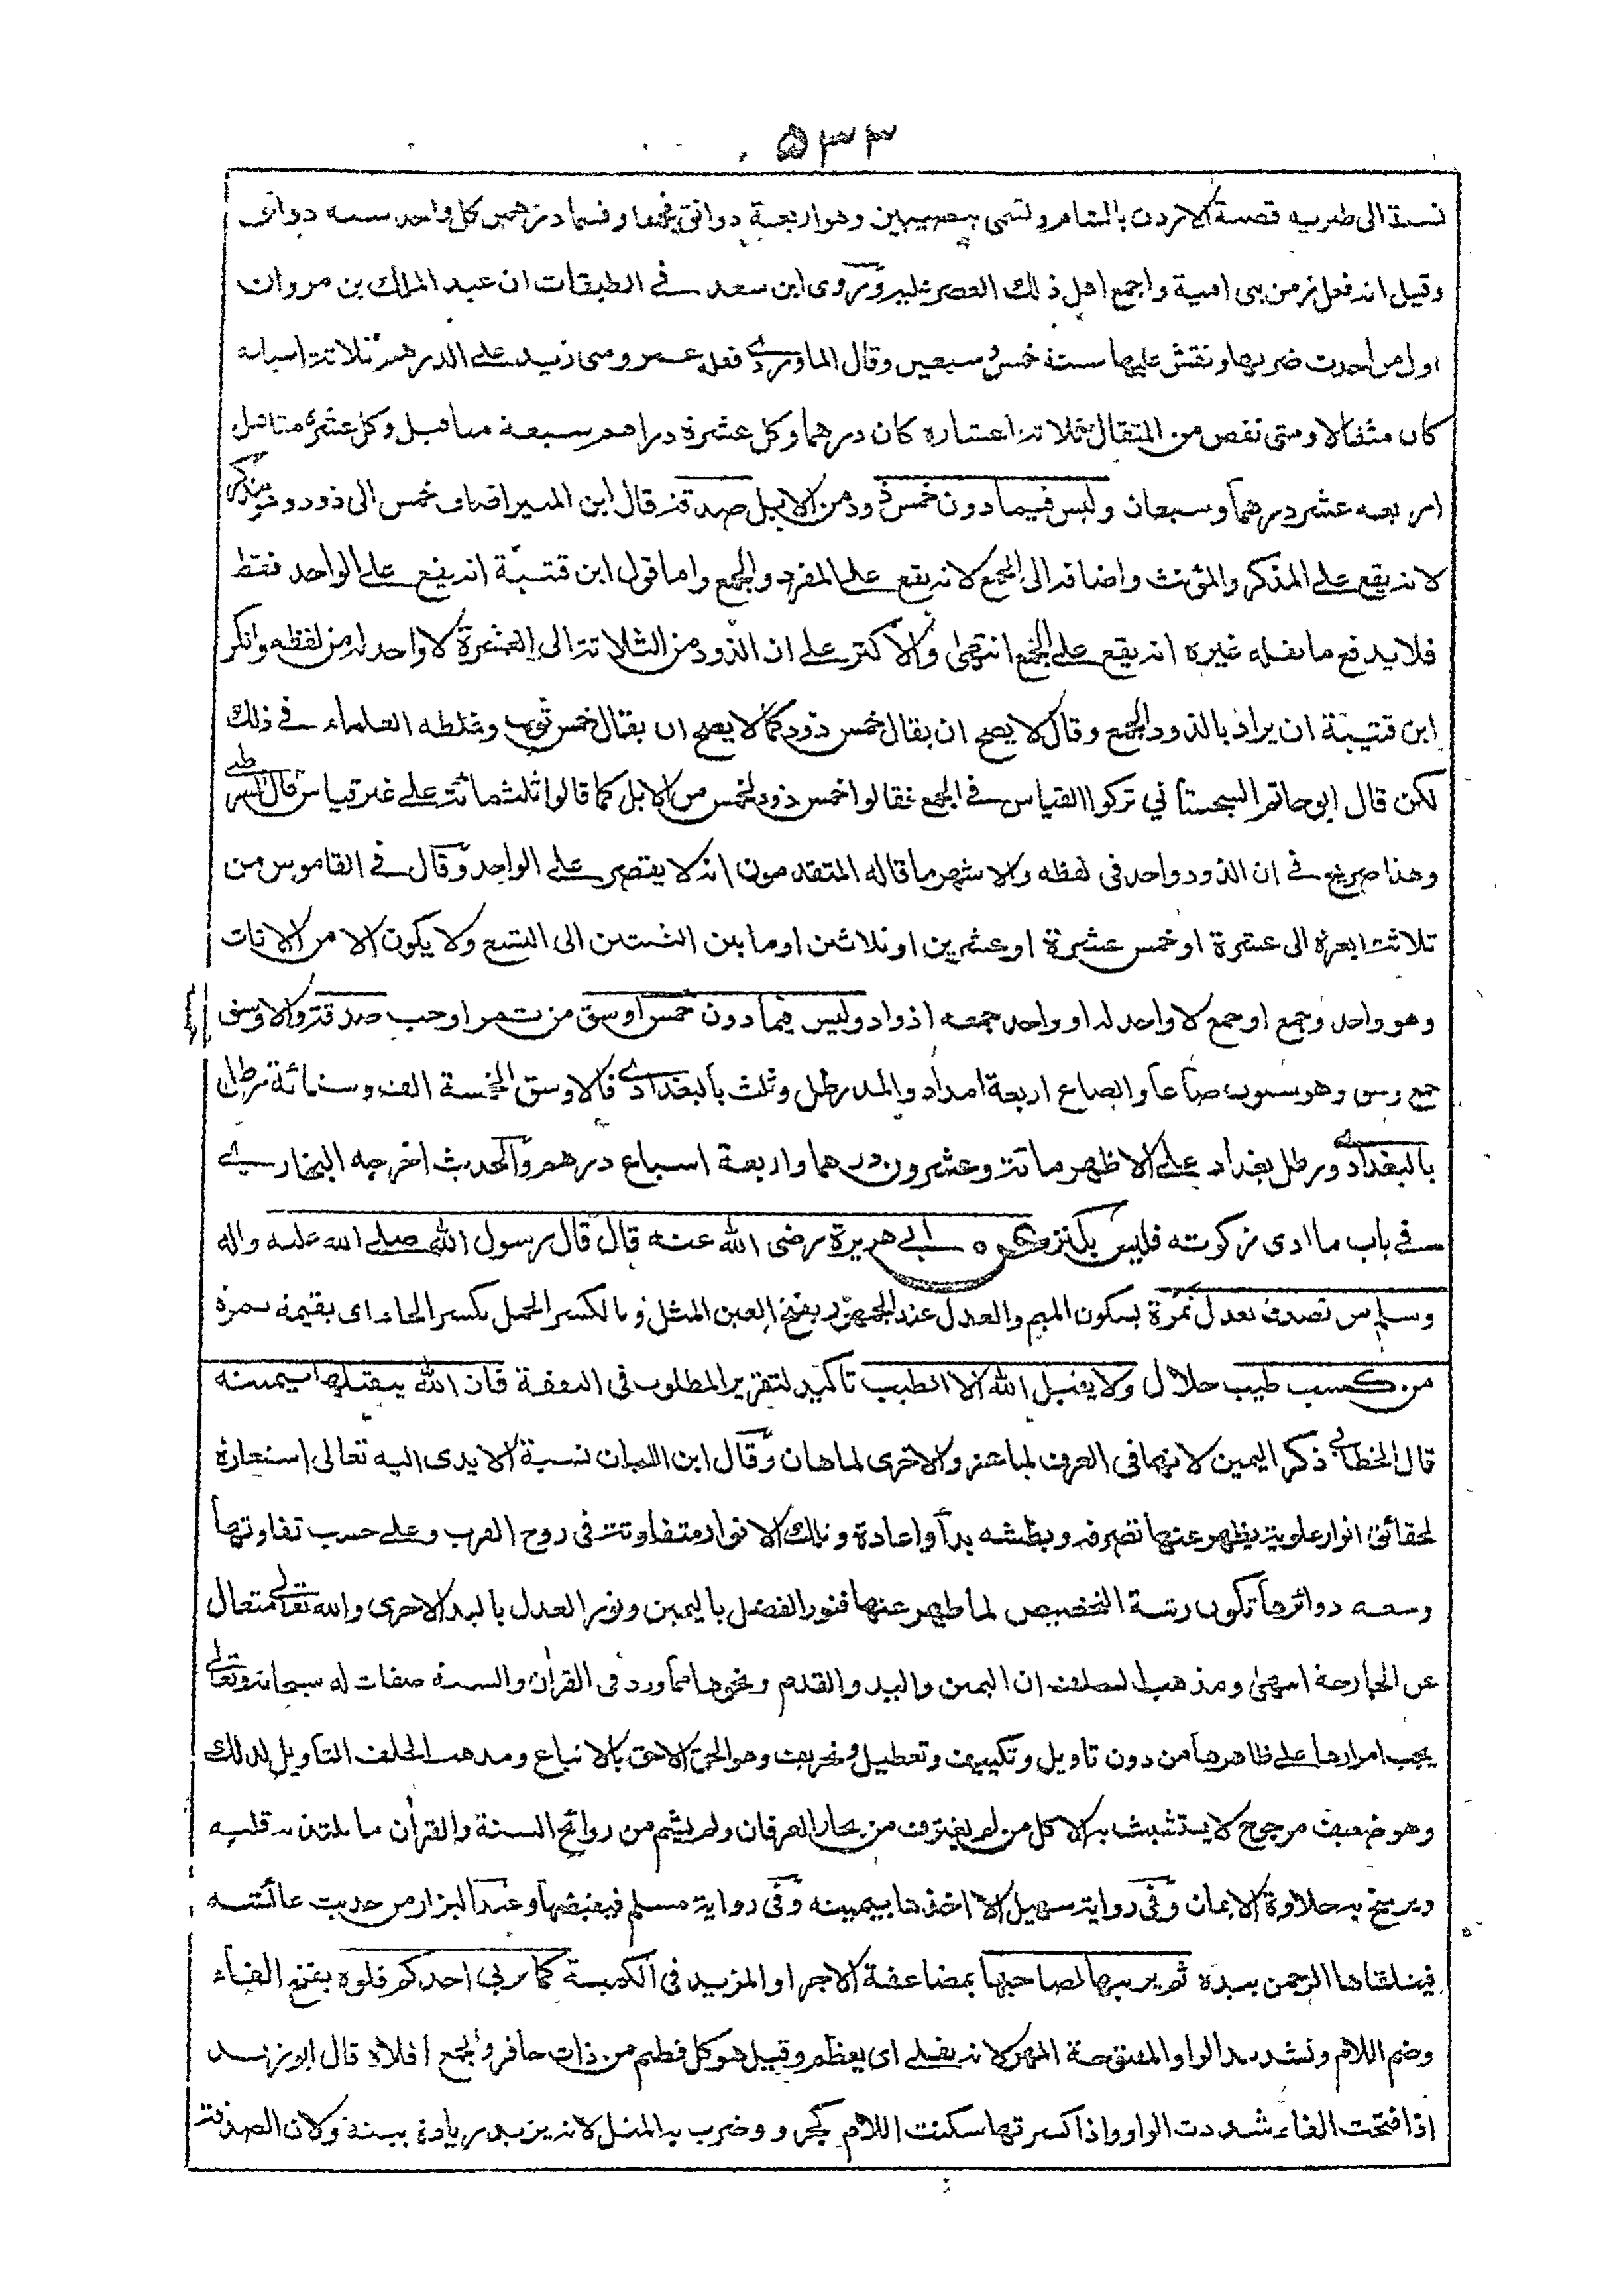 ۵۳۳
نسبة الى طبرية قصبة الاردن بالشام وتسمى بنصيبين وهو اربعة دوانق فجمعا وقسما درهمين كل واحد ستة دوانق
وقيل انه فعل زمن بنى امية واجمع اهل ذلك العصر عليه وروى ابن سعد فى الطبقات ان عبد الملك بن مروان
اول من احدث ضربها ونقش عليها سنة خمس وسبعين وقال الماوردى فعله عمر ومتى زيد على الدرهم ثلاثة اسباعه
كان مثقالا ومتى نقص من المثقال ثلاثة اعشاره كان درهما وكل عشرة دراهم سبعة مثاقيل وكل عشرة مثاقيل
اربعة عشر درهما وسبعان وليس فيما دون خمس ذود من الابل صدقة قال ابن المنير اضاف خمس الى ذود وهو مذكر
لانه يقع على المذكر والمؤنث واضافه الى الجمع لانه يقع على المفرد والجمع واما قول ابن قتيبة انه يقع على الواحد فقط
فلا يدفع ما نقله غيره انه يقع على الجمع انتهى والاكثر على ان الذود من الثلاثة الى العشرة لا واحد له من لفظه وانكر
ابن قتيبة ان يراد بالذود الجمع وقال لا يصح ان يقال خمس ذود كما لا يصح ان يقال خمس ثوب وغلطه العلماء فى ذلك
لكن قال ابو حاتم السجستاني تركوا القياس فى الجمع فقالوا خمس ذود لخمس من الابل كما قالوا ثلثمائة على غير قياس قال القرطبى
وهذا صريح فى ان الذود واحد فى لفظه والاشهر ما قاله المتقدمون انه لا يقتصر على الواحد وقال فى القاموس من
ثلاثة ابعرة الى عشرة او خمس عشرة او عشرين او ثلاثين او ما بين الثنتين الى التسع ولا يكون الا من الاناث
وهو واحد وجمع او جمع لا واحد له او واحد جمعه اذواد وليس فيما دون خمس اوسق من تمر او حب صدقة والاوسق
جمع وسق وهو ستون صاعا والصاع اربعة امداد والمد رطل وثلث بالبغدادى فالاوسق الخمسة الف وستمائة رطل
بالبغدادى ورطل بغداد على الاظهر مائة وعشرون درهما واربعة اسباع درهم والحديث اخرجه البخارى
فى باب ما ادى زكوته فليس بكنز عن ابى هريرة رضى الله عنه قال قال رسول الله صلى الله عليه واله
وسلم من تصدق بعدل تمرة بسكون الميم والعدل عند الجمهور بفتح العين المثل وبالكسر الحمل بكسر الحاء اى بقيمة تمرة
من كسب طيب حلال ولا يقبل الله الا الطيب تاكيد لتقرير المطلوب فى النفقة فان الله يتقبلها بيمينه
قال الخطابى ذكر اليمين لانها فى العرف لما عز والاخرى لما هان وقال ابن اللبان نسبة الايدى اليه تعالى استعارة
لحقائق انوار علوية يظهر عنها تصرفه وبطشه بدأ واعادة وتلك الانوار متفاوتة فى روح القرب وعلى حسب تفاوتها
وسعة دوائرها تكون رتبة التخصيص لما ظهر عنها فنور الفضل باليمين ونور العدل باليد الاخرى والله تعالى متعال
عن الجارحة انتهى ومذهب السلف ان اليمين واليد والقدم ونحوها مما ورد فى القران والسنة صفات له سبحانه وتعالى
يجب امرارها على ظاهرها من دون تاويل وتكييف وتعطيل وتحريف وهو الحق الاحق بالاتباع ومذهب الخلف التأويل لذلك
وهو ضعيف مرجوح لا يتشبث به الا كل من لم يغترف من بحار العرفان ولم يشم من روائح السنة والقران ما يلتذ به قلبه
ويرسخ به حلاوة الايمان وفى رواية سهيل الا اخذها بيمينه وفى رواية مسلم فيقبضها وعند البزار من حديث عائشة
فيتلقاها الرحمن بيده ثم يربيها لصاحبها بمضاعفة الاجر او المزيد فى الكمية كما يربى احدكم فلوه بفتح الفاء
وضم اللام وتشديد الواو المفتوحة المهر لانه يفلى اى يعظم وقيل هو كل فطيم من ذات حافر والجمع افلاء قال ابو زيد
اذا فتحت الفاء شددت الواو واذا كسرتها سكنت اللام كجرو وضرب به المثل لانه يزيد زيادة بينة ولان الصدقة